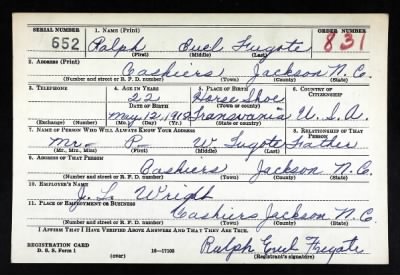 SERIAL NUMBER 1. NAME (Print) ORDER NUMBER
652 Ralph Euel Fugate 831
(First) (Middle) (Last)
2. ADDRESS (Print)
Cashiers Jackson N.C.
(Number and street or R. F. D. number) (Town) (County) (State)
3. TELEPHONE 4. AGE IN YEARS 5. PLACE OF BIRTH 6. COUNTRY OF CITIZENSHIP
22 Horse Shoe
DATE OF BIRTH (Town or county)
May 12, 1918 Transvania U.S.A.
(Exchange) (Number) (Mo.) (Day) (Yr.) (State or country)
7. NAME OF PERSON WHO WILL ALWAYS KNOW YOUR ADDRESS 8. RELATIONSHIP OF THAT PERSON
Mr. P W Fugate Father
(Mr., Mrs., Miss) (First) (Middle) (Last)
9. ADDRESS OF THAT PERSON
Cashiers Jackson N.C.
(Number and street or R. F. D. number) (Town) (County) (State)
10. EMPLOYER'S NAME
J. L. Wright
11. PLACE OF EMPLOYMENT OR BUSINESS
Cashiers Jackson N.C.
(Number and street or R. F. D. number) (Town) (County) (State)
I AFFIRM THAT I HAVE VERIFIED ABOVE ANSWERS AND THAT THEY ARE TRUE.
REGISTRATION CARD
D. S. S. Form 1 16—17105 Ralph Euel Fugate
(over) (Registrant's signature)